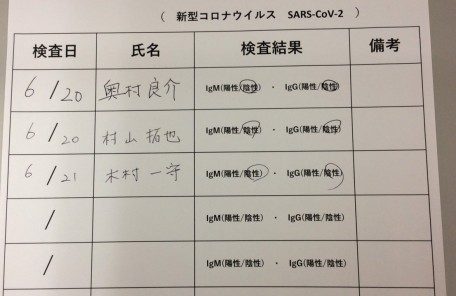 ( 新型コロナウイルス SARS-CoV-2 )
検査日 氏名 検査結果 備考
6/20 奥村良介 IgM(陽性/陰性) ・ IgG(陽性/陰性)
6/20 村山拓也 IgM(陽性/陰性) ・ IgG(陽性/陰性)
6/21 木村一守 IgM(陽性/陰性) ・ IgG(陽性/陰性)
/ IgM(陽性/陰性) ・ IgG(陽性/陰性)
/ IgM(陽性/陰性) ・ IgG(陽性/陰性)